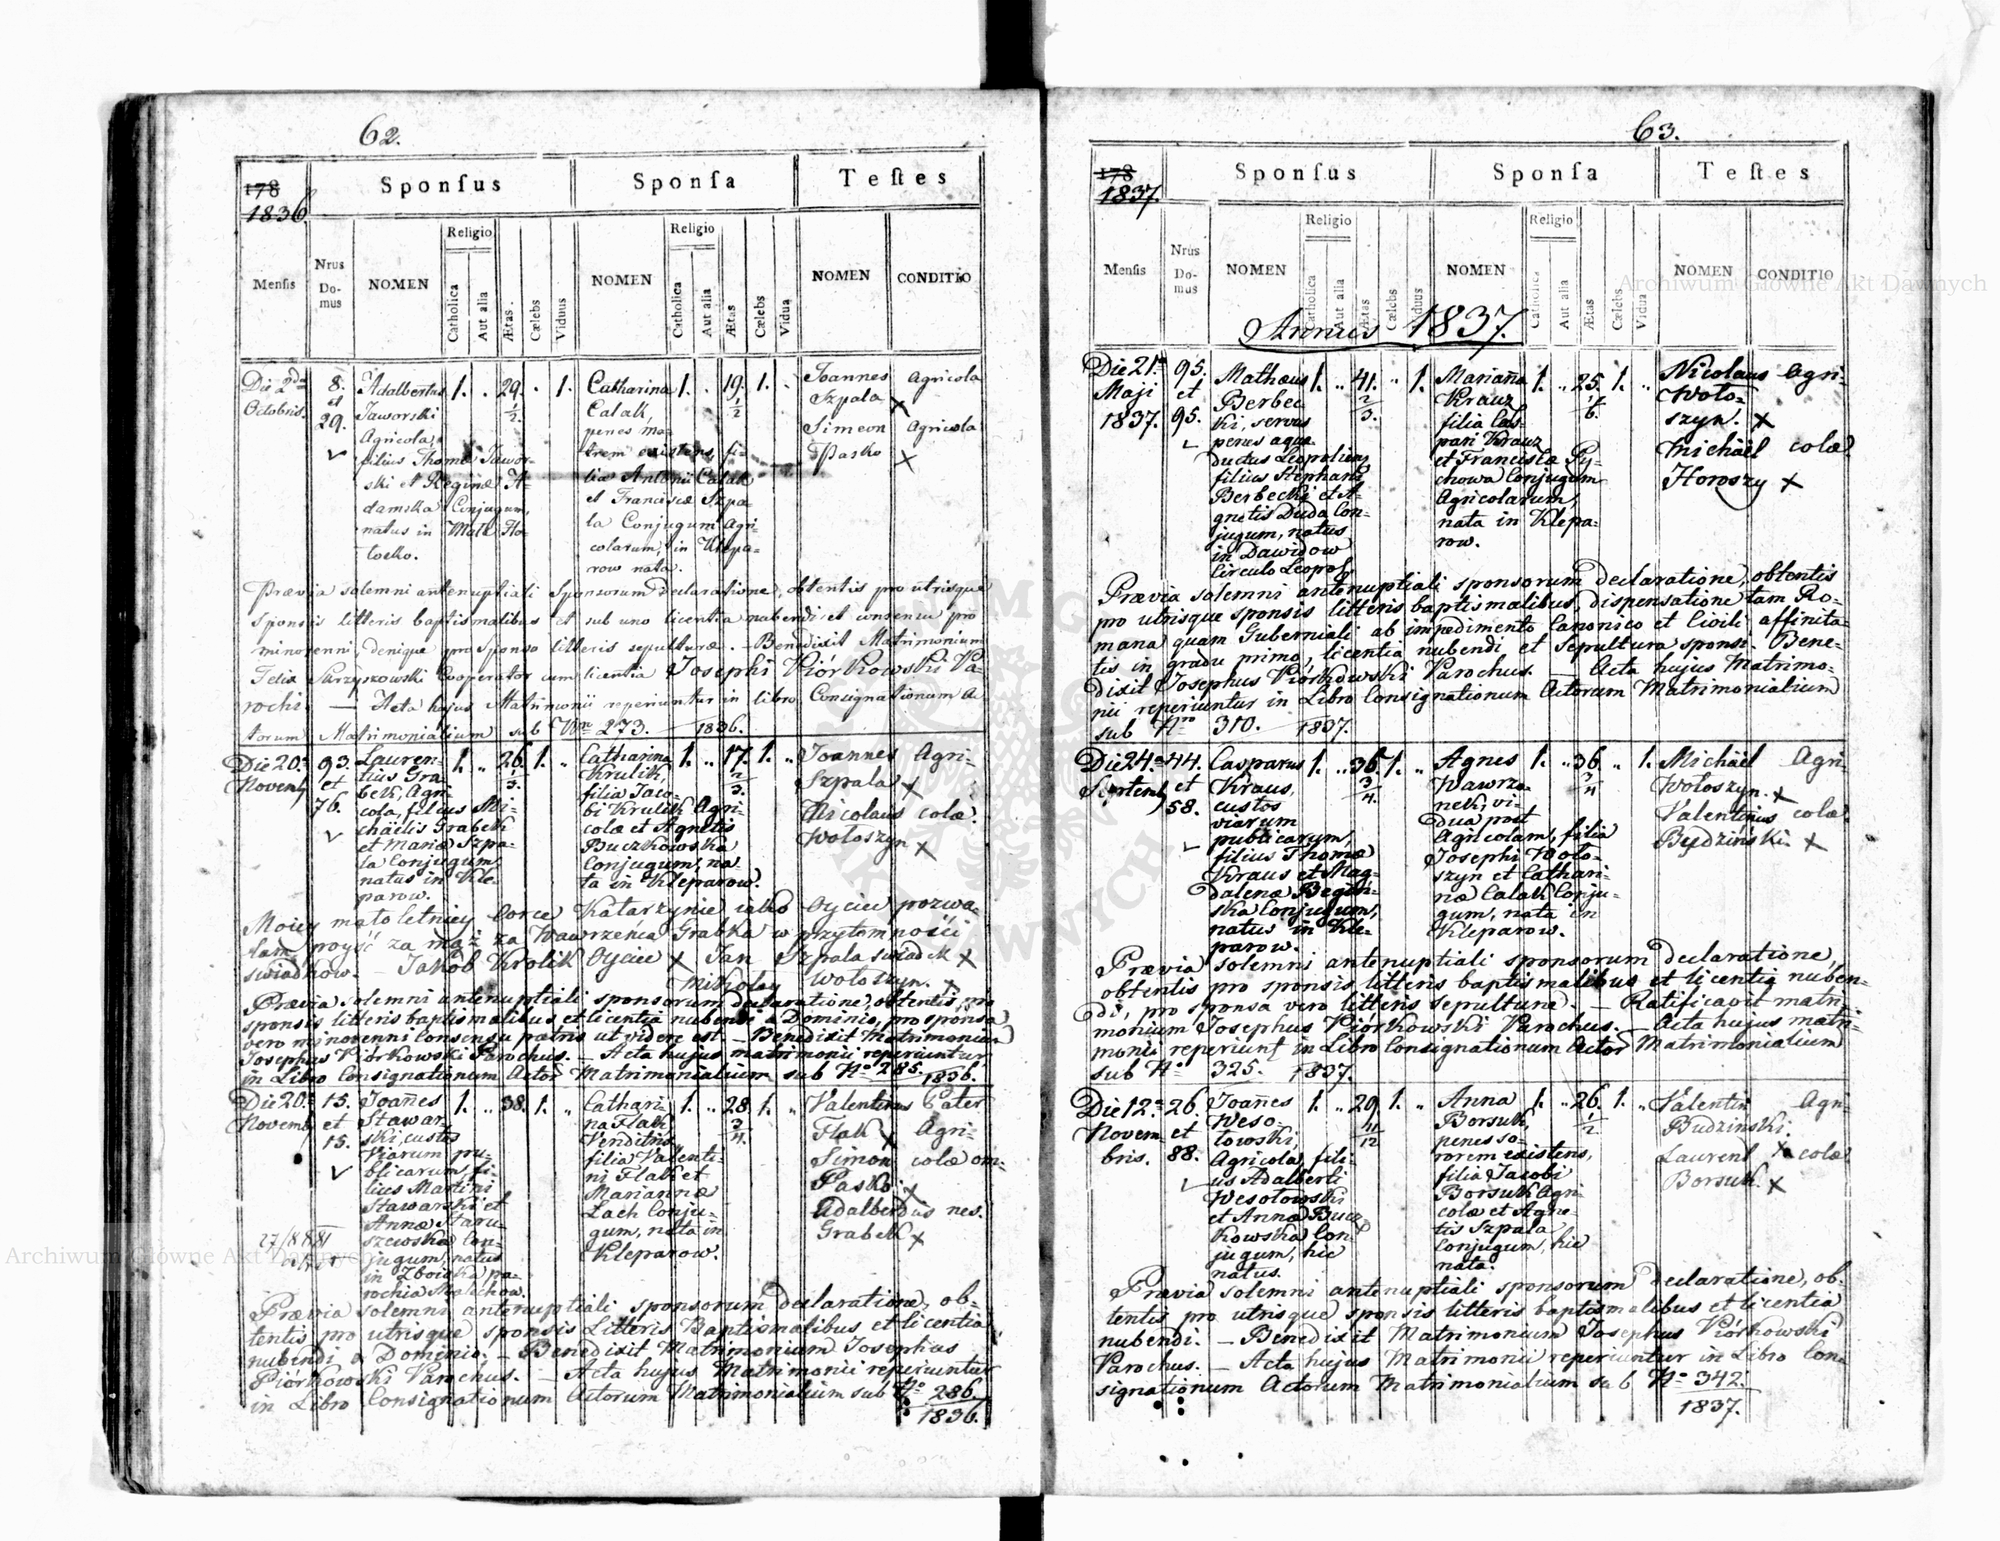 62.
178
1836.
Sponſus
Sponſa
Teſtes
Menſis
Nrus Do-mus
NOMEN
Religio
Catholica
Aut alia
Ætas.
Cælebs
Viduus
NOMEN
Religio
Catholica
Aut alia
Ætas
Cælebs
Vidua
NOMEN
CONDITIO
Die 2da
Octobris.
8.
et
29.
Adalbertus
Jaworski
Agricola,
filius Thomæ Jawor-
ski et Reginæ A-
damska Conjugum,
natus in Mali Ho-
losko.
1. „ 29. 1/2 „ 1.
Catharina
Calak,
penes ma-
trem existens, fi-
lia Antonii Calak
et Franciscæ Szpa-
la Conjugum Agri-
colarum, in Klepa-
row nata.
1. „ 19. 1/2 1. „
Joannes
Szpala X
Simeon
Pasko X
Agricola
Agricola
Prævia solemni antenuptiali Sponsorum declaratione, obtentis pro utrisque
sponsis litteris baptismalibus et sub uno licentia nubendi et consensu pro
minorenni, denique pro sponso litteris sepulturæ. – Benedixit Matrimonium
Felix Skrzyszowski Cooperator cum licentia Josephi Piórkowski Pa-
rochi. — Acta hujus Matrimonii reperiuntur in libro Consignationum A-
ctorum Matrimonialium sub Nro 273. 1836.
Die 20a
Novemb
93.
et
76.
Lauren-
tius Gra
bek, Agri-
cola, filius Mi-
chäelis Grabek
et Mariæ Szpa-
la Conjugum,
natus in Kle-
parow.
1. „ 26. 1/3. 1. „
Catharina
Krulik,
filia Jaco-
bi Krulik Agri-
colæ et Agnetis
Buczkowska
Conjugum, na-
ta in Kleparow.
1. „ 17. 2/3. 1. „
Joannes
Szpala X
Nicolaus
Wołoszyn X
Agri-
colæ.
Moiey małoletniey Corce Katarzynie iako Oyciec pozwa-
lam poyść za mąż za Wawrzenca Grabka w przytomności
swiadkow. – Jakób Krolik Oyciec X Jan Szpala swiadek X
Mikołay Wołoszyn. X
Prævia solemni antenuptiali sponsorum declaratione, obtentis pro
sponsis litteris baptismalibus et licentia nubendi a Dominio, pro sponsa
vero minorenni consensu patris ut videre est. – Benedixit Matrimonium
Josephus Piórkowski Parochus. – Acta hujus matrimonii reperiuntur
in Libro Consignationum Actor Matrimonialium sub No 285. 1836.
Die 20a
Novemb
15.
et
15.
Joañes
Stawar
ski, custos
Viarum pu-
blicarum, fi-
lius Martini
Stawarski et
Annæ Staru-
szewska Con-
jugum, natus
in Zboiska pa-
rochia Malichow.
1. „ 38. 1. „
Cathari-
na Flak,
Venditrix
filia Valenti-
ni Flak et
Mariannæ
Lach Conju-
gum, nata in
Kleparow.
1. „ 28. 3/4. 1. „
Valentinus Pater
Flak X
Simon
Pasko X
Adalbertus
Grabek X
Agri-
colæ om-
nes.
Prævia solemni antenuptiali sponsorum declaratione, ob-
tentis pro utrisque sponsis Litteris Baptismalibus et licentia
nubendi a Dominio. – Benedixit Matrimonium Josephus
Piórkowski Parochus. – Acta hujus Matrimonii reperiuntur
in Libro Consignationum Actorum Matrimonialium sub No 286.
1836.
63.
178
1837.
Sponſus
Sponſa
Teſtes
Menſis
Nrus Do-mus
NOMEN
Religio
Catholica
Aut alia
Ætas
Cælebs
Viduus
NOMEN
Religio
Catholica
Aut alia
Ætas
Cælebs
Vidua
NOMEN
CONDITIO
Annus 1837.
Die 21a
Maji
1837.
95.
et
95.
Matheus
Berbec
ki, servus
penes aquæ
ductus Leopolien,
filius Stephani
Berbecki et A-
gnetis Duda Con-
jugum, natus
in Dawidow
Circulo Leopol.
1. „ 41. 2/3. „ 1.
Mariaña
Krauz
filia Cas-
pari Krauz
et Franciscæ Py-
chowa Conjugum
Agricolarum,
nata in Klepa-
row.
1. „ 25. 1/6. 1. „
Nicolaus
Woło-
szyn. X
Michäel
Horoszy X
Agri-
colæ
Prævia solemni antenuptiali sponsorum declaratione, obtentis
pro utrisque sponsis litteris baptismalibus, dispensatione tam Ro-
mana quam Guberniali ab impedimento Canonico et Civili affinita-
tis in gradu primo, licentia nubendi et sepultura sponsi. Bene-
dixit Josephus Piórkowski Parochus. — Acta hujus Matrimo-
nii reperiuntur in Libro Consignationum Actorum Matrimonialium
sub Nro 310. 1837.
Die 24a
Septemb
44.
et
58.
Casparus
Kraus,
custos
viarum
publicarum,
filius Thomæ
Kraus et Mag-
dalenæ Begiń-
ska Conjugum,
natus in Kle-
parow.
1. „ 36. 3/4. 1. „
Agnes
Wawrzo-
nek, vi-
dua post
Agricolam, filia
Josephi Woło-
szyn et Cathari-
næ Calak Conju-
gum, nata in
Kleparow.
1. „ 36. 3/4 „ 1.
Michäel
Wołoszyn. X
Valentinus
Bydziński. X
Agri-
colæ.
Prævia solemni antenuptiali sponsorum declaratione,
obtentis pro sponsis litteris baptismalibus et licentia nuben-
di, pro sponsa vero litteris sepulturæ. — Ratificavit matri-
monium Josephus Piórkowski Parochus. — Acta hujus matri-
monii reperiunt in Libro Consignationum Actor Matrimonialium
sub No 325. 1837.
Die 12a
Novem-
bris.
26.
et
88.
Joañes
Weso-
łowski,
Agricola, fili-
us Adalberti
Wesołowski
et Annæ Bucz
kowska Con-
jugum, hic
natus.
1. „ 29. 11/12 1. „
Anna
Borsuk,
penes so-
rorem existens,
filia Jacobi
Borsuk Agri-
colæ et Agne-
tis Szpala
Conjugum, hic
nata.
1. „ 26. 1/2 1. „
Valentin
Budzinski
X
Laurent
Borsuk. X
Agri-
colæ
Prævia solemni antenuptiali sponsorum declaratione, ob-
tentis pro utrisque sponsis litteris baptismalibus et licentia
nubendi. – Benedixit Matrimonium Josephus Piórkowski
Parochus. – Acta hujus Matrimonii reperiuntur in Libro Con-
signationum Actorum Matrimonialium sub No 342.
1837.
Archiwum Główne Akt Dawnych
Archiwum Główne Akt Dawnych